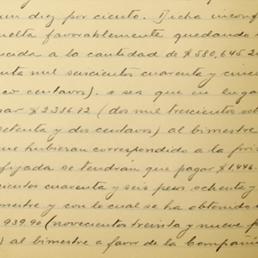 un diez por ciento. Dicha inconf
uelta favorablemente quedando
cida a la cantidad de $580,645.2
enta mil seiscientos cuarenta y cinco
co centavos) o sea que en luga
gar $2386.72 (dos mil trescientos
setenta y dos centavos) al bimestre
que hubieran correspondido a la pri
fijada se tendrán que pagar $1,446.
cientos cuarenta y seis pesos ochenta y
mestre y con lo cual se ha obtenido
939.90 (novecientos treinta y nueve p
) al bimestre a favor de la Compañía